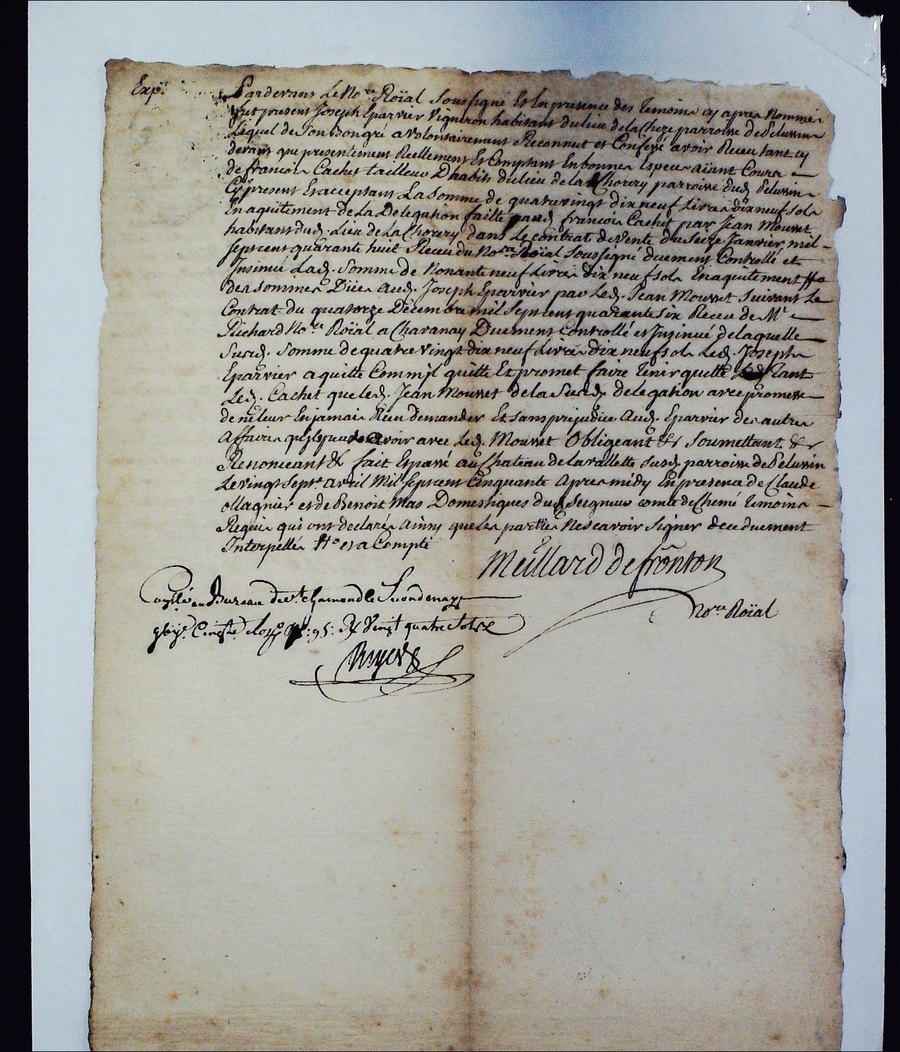 Exp.
Pardevant Le No.re Roïal Soussigné Et En presence des temoins cy apres Nommé
fut present Joseph Eparvier Vigneron habitant du lieu de la Choze parroisse de Pelussin
Lequel de son bon gré a Volontairement Reconnut et Confessé avoir Receu tant cy
devant que presentement Reellement Et Comptant En bonnes Especes aïant Cours
de francois Cachet tailleur D'habits du lieu de la Chorery parroisse dud. Pelussin
Cy present Et acceptant La Somme de quatrevingt dix neuf Livres dix neuf sols
En aquitement de La Delegation faitte aud. francois Cachet par Jean Mouset
habitant dud. Lieu de la Chorery dans Le Contrat de Vente du Seize Janvier mil
Sept cent quarante huit Receu du No.re Roïal Soussigné duement Controllé et
Insinué Lad. Somme de Nonante neuf Livres dix neuf sols En aquitement
des sommes Dües Aud. Joseph Eparvier par Led. Jean Mouset Suivant Le
Contrat du quatorze Décembre mil Sept Cent quarante six Receu de M.e
Richard No.re Roïal a Chavanay Duement Controllé et Insinué de laquelle
Susd. Somme de quatre vingt dix neuf Livres dix neuf sols Led. Joseph
Eparvier a quitté Comm'il quitte Et promet faire tenir quitte tant
Led. Cachet que led. Jean Mouset de la Susd. delegation avec promesse
de ne leur En jamais Rien demander Et sans prejudice Aud. Eparvier des autres
Affaires qu'il peut avoir avec Led. Mouset Obligeant &c Soumettant &c
Renonceant &c fait Et passé au Chateau de la vallette susd. parroisse de Pelussin
Le vingt sept.e avril Mil sept cent Cinquante Apres midy En presence de Claude
Ollagnier et de Benoit Mas Domestiques dud. Seigneur comte de Chemé temoins
Requis qui ont declaré ainsy que les parties Ne scavoir Signer de ce duement
Interpellés
Meillard de frônton
No.re Roïal
Con.llé au Bureau de St. chamond le Second may